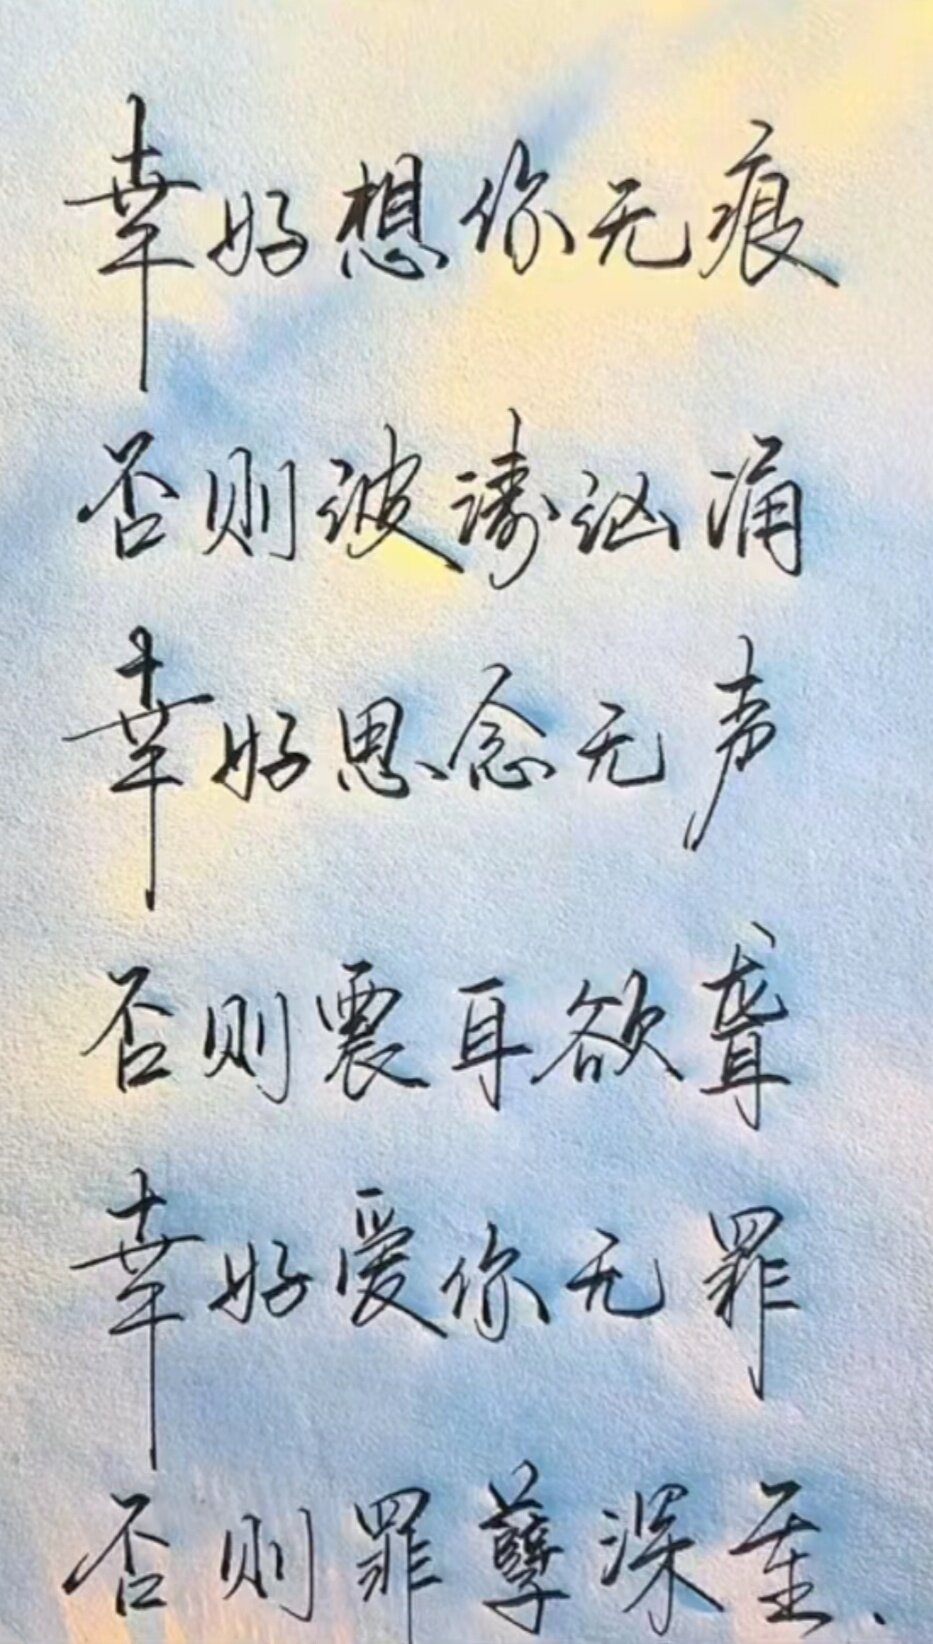 幸好想你无痕
否则波涛汹涌
幸好思念无声
否则震耳欲聋
幸好爱你无罪
否则罪孽深重.